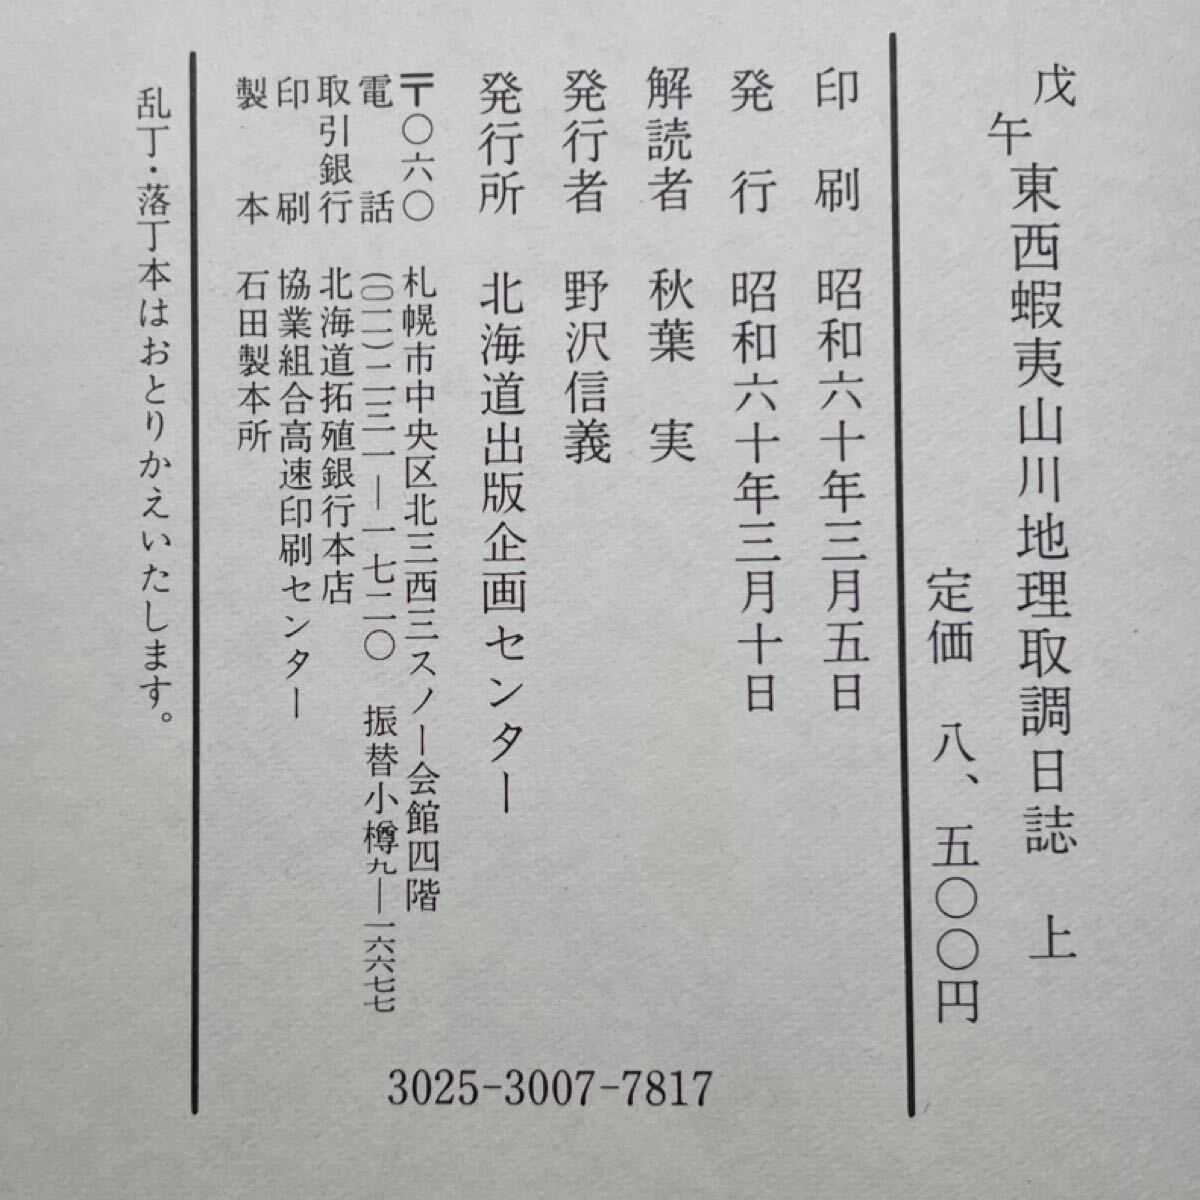 戊午東西蝦夷山川地理取調日誌　上
定価　八、五〇〇円
印刷　昭和六十年三月五日
発行　昭和六十年三月十日
解読者　秋葉　実
発行者　野沢信義
発行所　北海道出版企画センター
〒〇六〇　札幌市中央区北三西三スノー会館四階
電話　(〇一一)二三一―一七二〇　振替小樽九―一六六七七
取引銀行　北海道拓殖銀行本店
印刷　協業組合高速印刷センター
製本　石田製本所
3025-3007-7817
乱丁・落丁本はおとりかえいたします。